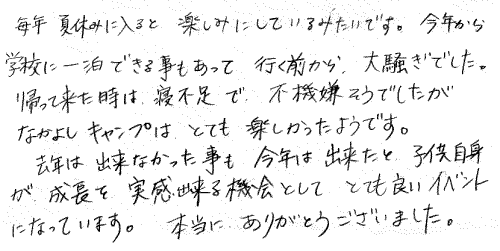 毎年 夏休みに入ると 楽しみにしているみたいです。 今年から
学校に一泊できる事もあって 行く前から、大騒ぎでした。
帰って来た時は、寝不足で、不機嫌そうでしたが
なかよしキャンプは、とても楽しかったようです。
去年は出来なかった事も 今年は出来たと、子供自身
が、成長を実感出来る機会として とても良いイベント
になっています。 本当に ありがとうございました。